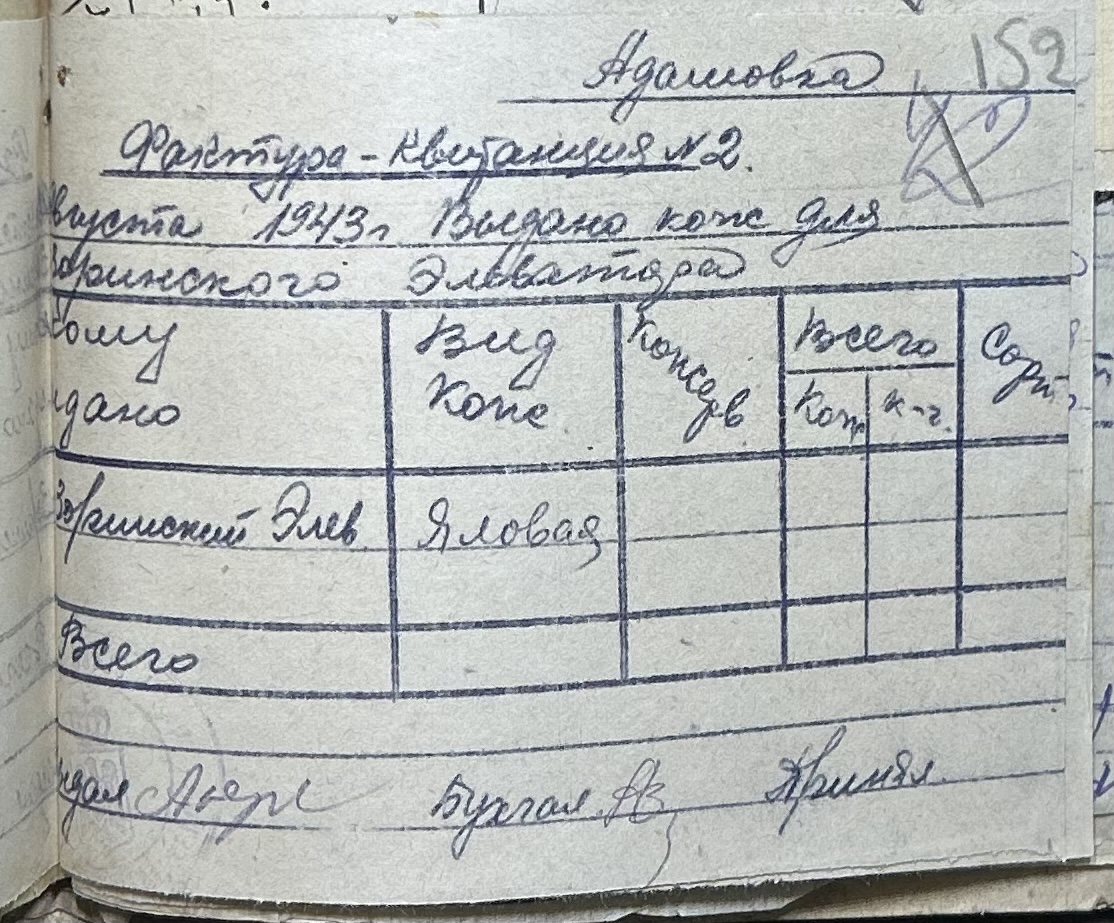 152
Адамовка
Фактура-квитанция №2.
вгуста 1943г Выдано кож для
Зоринского Элеватора
Кому
идано
Вид
Кож
Консерв
Всего
Кож к-г.
Сорт
Зоринский Элев. Яловая
Всего
ыдал Бухгал. Принял.